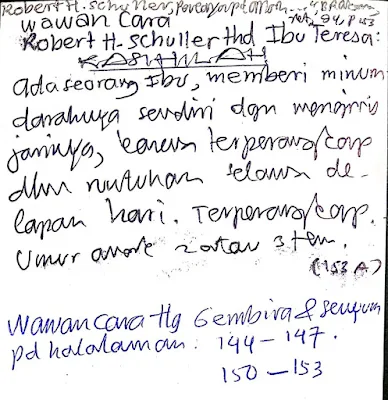 Robert H. Schuller,
wawan Cara
Robert H. Schuller thd Ibu Teresa:
KASIH IBU
Ada seorang Ibu, memberi minum
darahnya sendiri dgn mengiris
jarinya, karena terperangkap
dlm runtuhan selama de-
lapan hari. Terperangkap.
Umur anak 2 atau 3 tem.
(153 A)
Wawancara ttg Gembira & senyum
pd halalaman: 144-147.
150-153